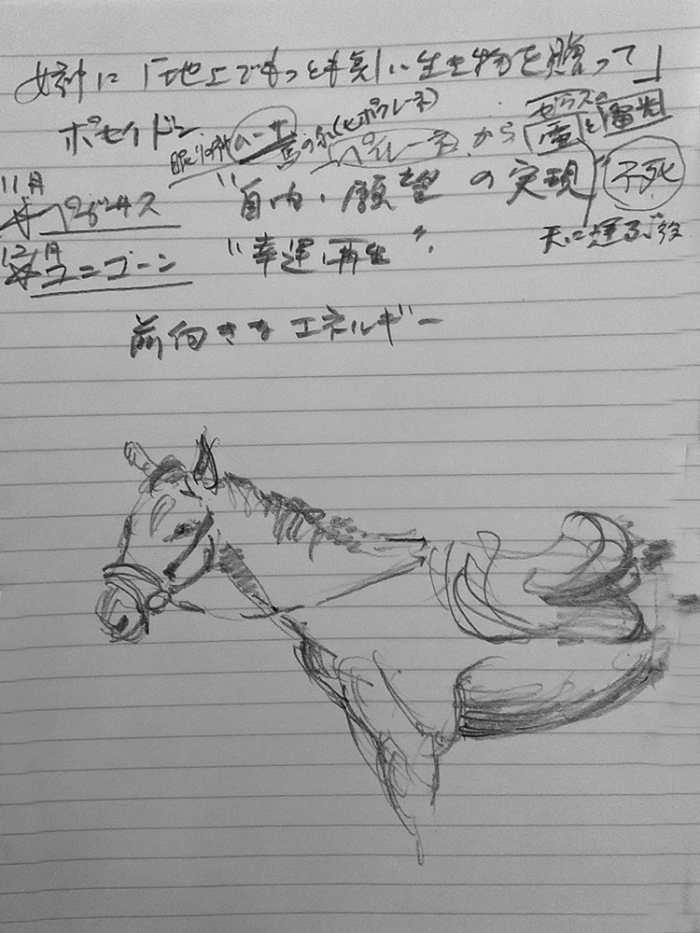 女神に「地上でもっとも美しい生き物を贈って」
ポセイドン
馬の泉(ヒポクレーネ)
ペイレーネ から ゼウスの 雷と雷光
11月
ペガサス "自由・願望の実現" 不死
天に輝る
12月
ユニコーン "幸運 再生"
前向きな エネルギー